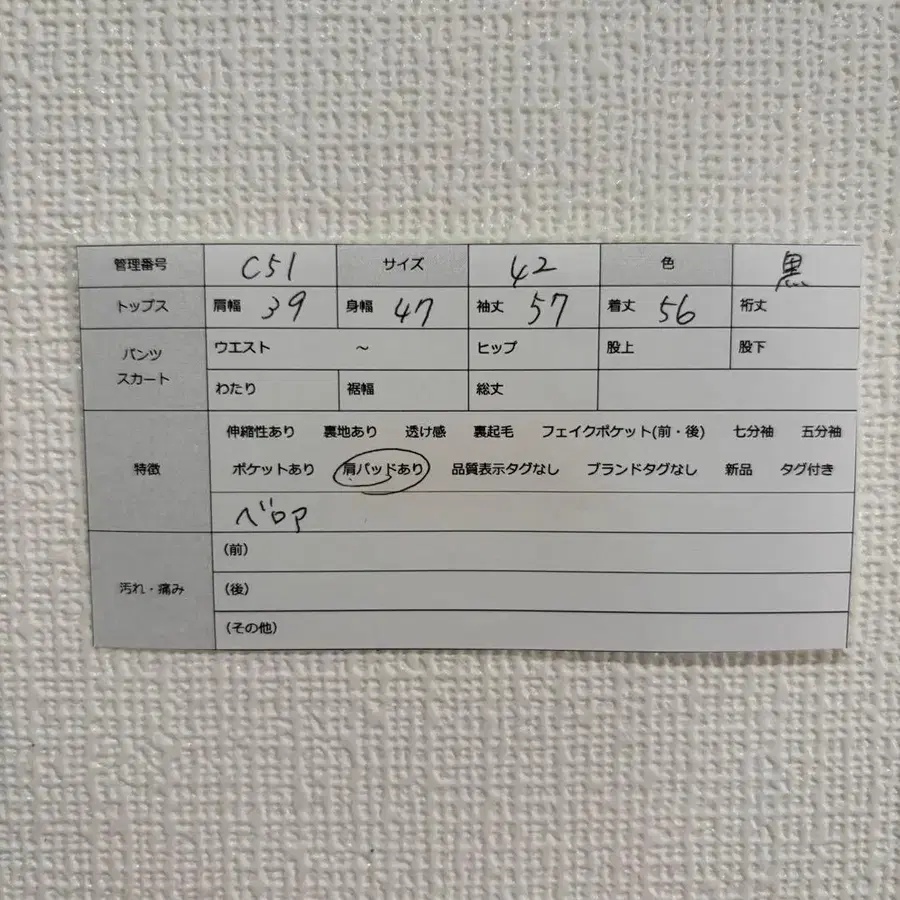 管理番号 C51 サイズ 42 色 黒
トップス 肩幅 39 身幅 47 袖丈 57 着丈 56 裄丈
パンツ スカート ウエスト ～ ヒップ 股上 股下
わたり 裾幅 総丈
特徴 伸縮性あり 裏地あり 透け感 裏起毛 フェイクポケット(前・後) 七分袖 五分袖
ポケットあり 肩パッドあり 品質表示タグなし ブランドタグなし 新品 タグ付き
ベロア
汚れ・痛み (前)
(後)
(その他)